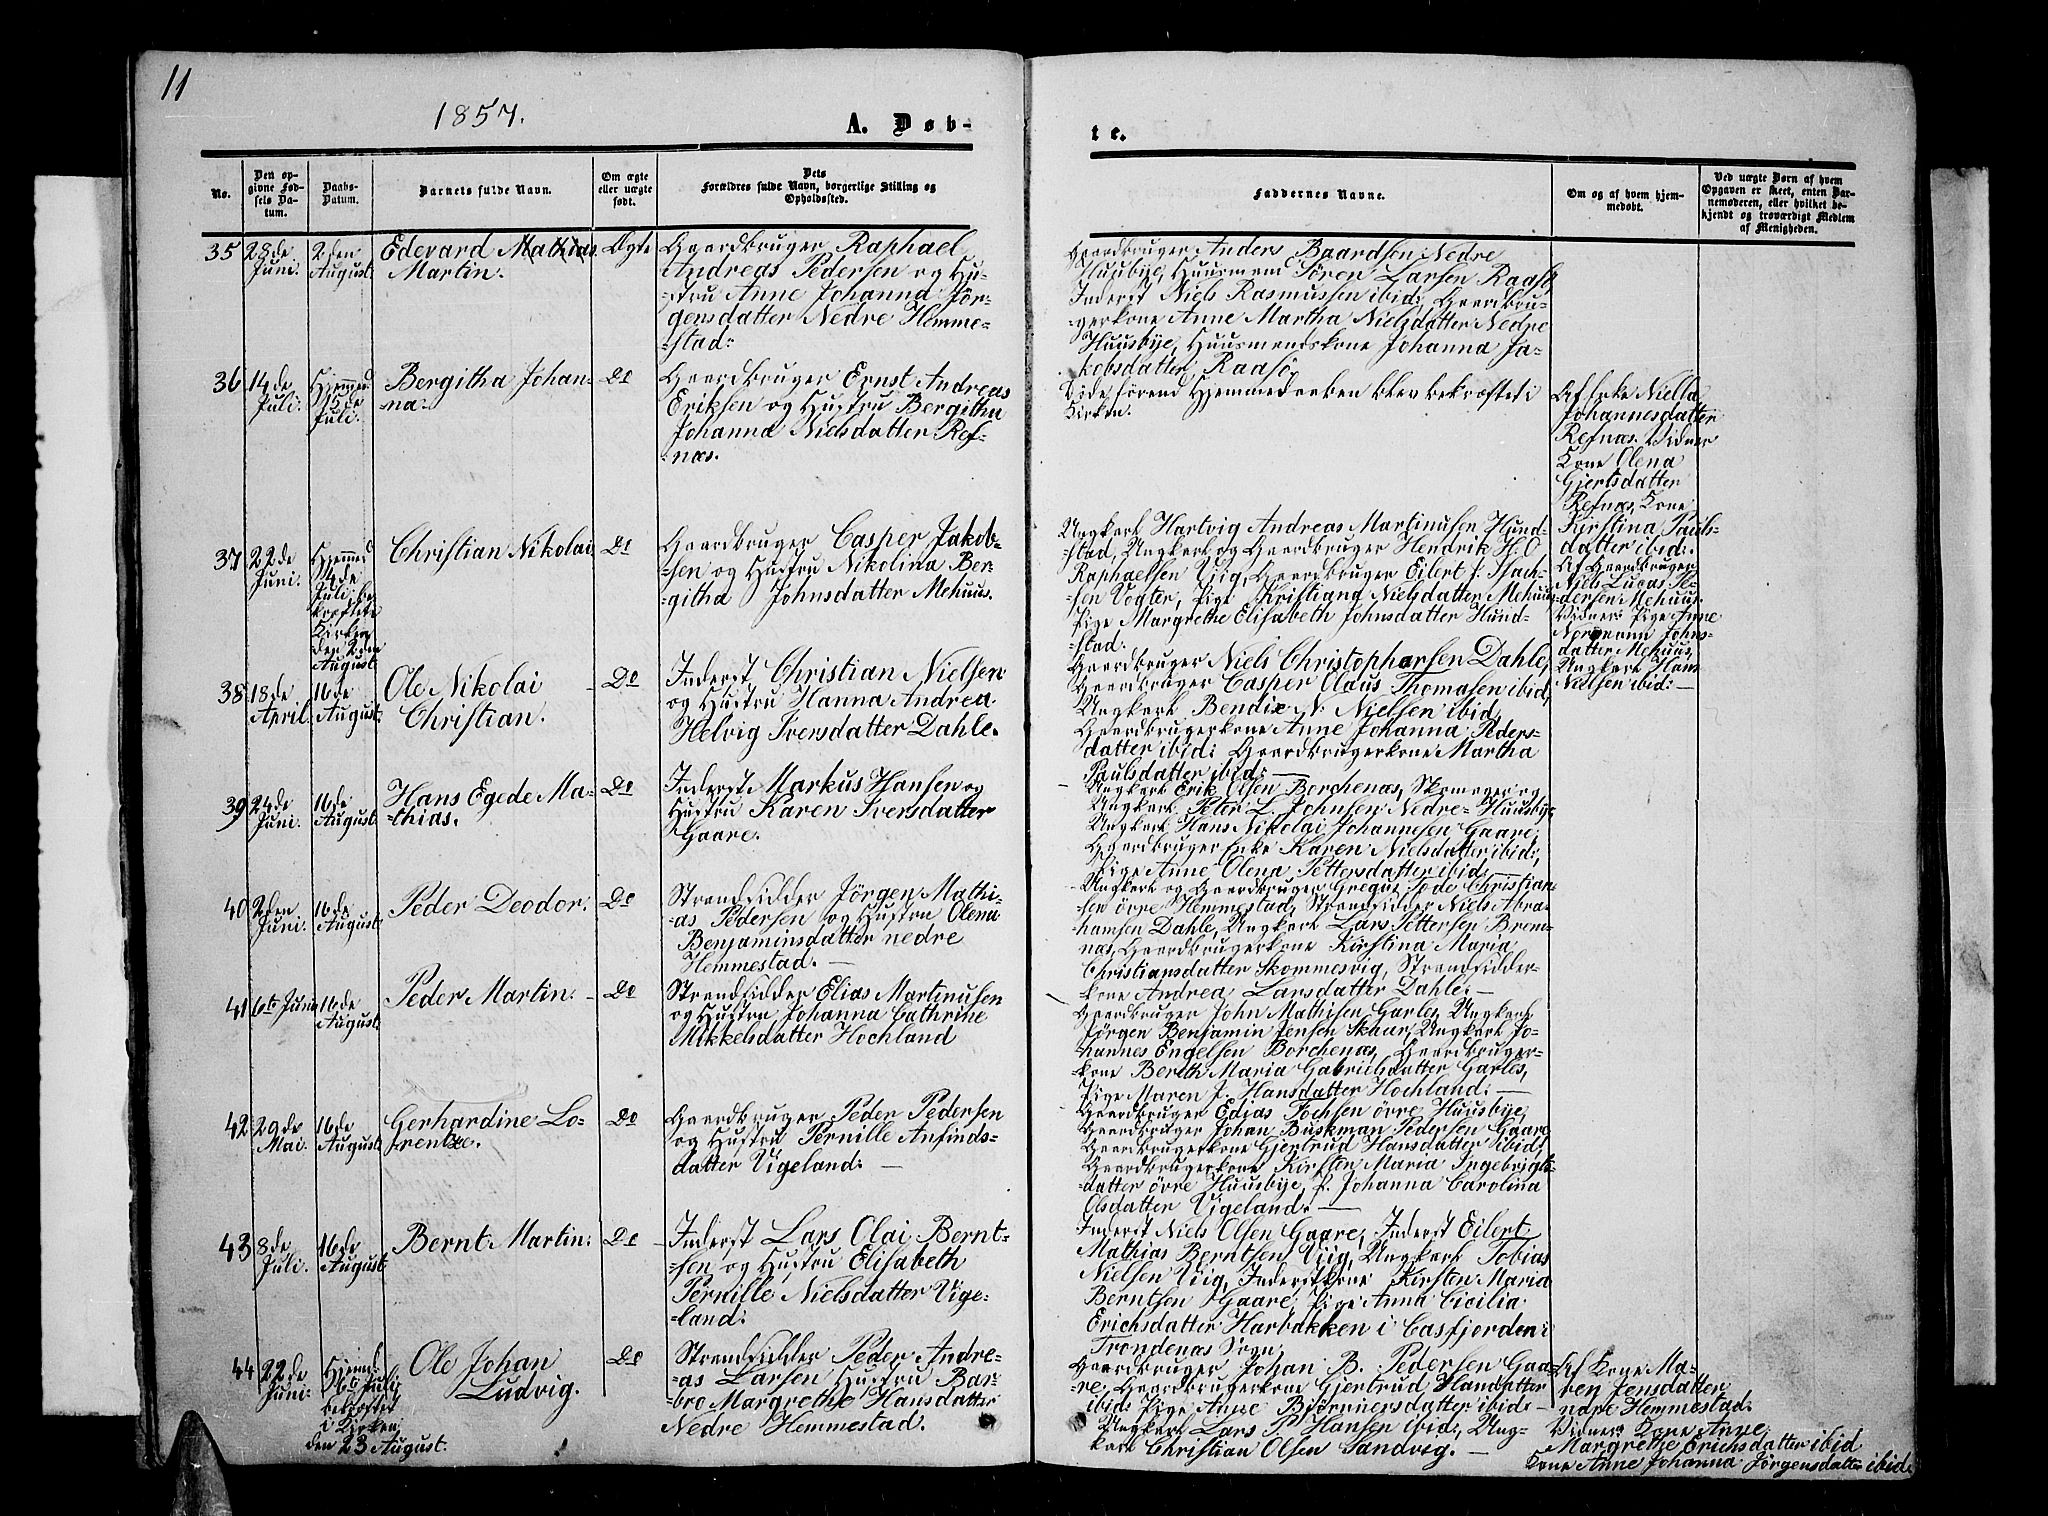 11
1857.
A. Døb-
te.
No.
Den op-
givne Fød-
sels Da-
tum.
Daabs-
Datum.
Barnets fulde Navn.
Om ægte
eller uægte
født.
Dets
Forældres fulde Navn, borgerlige Stilling og
Opholdssted.
Faddernes Navne.
Om og af hvem hjem-
medøbt.
Ved uægte Børn af hvem
Opgaven er skeet, enten Bar-
nemoderen, eller hvilket be-
kjendt og troværdigt Medlem
af Menigheden.
35
28de
Juni.
2den
August.
Edevard Mathias
Martin.
Ægte
Gaardbruger Raphael
Andreas Pedersen og Hu-
-stru Anne Johanna Jör-
gensdatter Nedre Hemme-
-stad:
Gaardbruger Anders Baardsen Nedre
Huusbye, Huusmand Sören Larsen Raasö,
Inderst Niels Rasmussen ibid:, Gaardbru-
gerkone Anne Martha Nielsdatter Nedre
Huusbye, Huusmandskone Johanna Ja-
kobsdatter, Raasö.
36
14de
Juli.
Hjemmed.
15de
Juli.
Bergitha Johan-
-na.
Do
Gaardbruger Ernst Andreas
Eriksen og Hustru Bergitha
Johanna Nielsdatter Ref-
-næs.
Döde förend Hjemmedaaben blev bekræftet i
Kirken.
Af Enke Niella
Johannesdatter
Refnæs. Vidner
Kone Olena
Gjertsdatter
Refnæs, Kone
Kirstina Pauls-
datter ibid:
37
22de
Juni.
Hjemmed
4de
Juli, be-
Kirken
den 2den
August.
Christian Nikolai
Do
Gaardbruger Casper Jakob-
-sen og Hustru Nikolina Ber-
-githa Johnsdatter Mehuus.
Ungkarl Hartvig Andreas Martinusen Hund-
-stad, Ungkarl og Gaardbruger Hendrik H. O.
Raphaelsen Viig, Gaardbruger Eilert J. Isach-
sen Vogter, Pige Kristiana Nielsdatter Mehuus,
Pige Margrethe Elisabeth Johnsdatter Hund-
-stad.
Af Gaardbruger
Niels Lucas Pe-
dersen Mehuus.
Vidner: Pige Anne
Normann Johns-
datter Mehuus,
Ungkarl Hans
Nielsen ibid:
38
18de
April.
16de
August.
Ole Nikolai
Christian.
Do
Inderst Christian Nielsen
og Hustru Hanna Andrea
Helvig Iversdatter Dahle.
Gaardbruger Niels Christophersen Dahle,
Gaardbruger Casper Claus Thomasen ibid,
Ungkarl Bendix N. Nielsen ibid,
Gaardbrugerkone Anne Johanna Peders-
datter ibid: Gaardbrugerkone Martha
Paulsdatter ibid:
39
24de
Juni.
16de
August.
Hans Egede Ma-
-thias.
Do
Inderst Markus Hansen og
Hustru Karen Iversdatter
Gaare.
Ungkarl Erik Olsen Borchenæs, Skomager og
Ungkarl Peter L. Johnsen Nedre-Huusbye
Ungkarl Hans Nikolai Johannesen Gaare,
Gaardbruger Enke Karen Nielsdatter ibid:,
Pige Anne Olena Pettersdatter ibid.
40
2den
Juni.
16de
August.
Peder Deodor.
Do
Strandsidder Jörgen Mathi-
-as Pedersen og Hustru Olena
Benjaminsdatter nedre
Hemmestad.
Ungkarl og Gaardbruger Gregus Tode Christian-
sen övre Hemmestad, Strandsidder Niels Abra-
hamsen Dahle, Ungkarl Lars Pettersen Brem-
næs, Gaardbrugerkone Kirstina Maria
Christiansdatter Skommesvig, Strandsidder-
kone Andrea Larsdatter Dahle.
41
6te Juni
16de
August.
Peder Martin.
Do
Strandsidder Elias Martinusen
og Hustru Johanna Cathrine
Mikkelsdatter Hochland
Gaardbruger John Mathisen Garles, Ungkarl
Jörgen Benjamin Jensen Skhar, Ungkarl Jo-
hannes Engelsen Borchenæs, Gaardbruger-
kone Bereth Maria Gabrielsdatter Garles,
Pige Maren J. Hansdatter Hochland:
42
29de
Mai.
16de
August.
Gerhardine Lo-
-rentze.
Do
Gaardbruger Peder Pedersen
og Hustru Pernille Anfinds-
datter Vigeland:
Gaardbruger Edias Tochsen övre Huusbye,
Gaardbruger Johan Buskman Pedersen Gaare,
Gaardbrugerkone Gjertrud Hansdatter ibid,
Gaardbrugerkone Kirsten Maria Ingebrigts-
datter övre Huusbye, P. Johanna Carolina
Olsdatter Vigeland.
43
8de
Juli.
16de
August.
Bernt Martin.
Do
Inderst Lars Olai Bernt-
-sen og Hustru Elisabeth
Pernille Nielsdatter Vige-
-land:
Inderst Niels Olsen Gaare, Inderst Eilert
Mathias Berntsen Viig, Ungkarl Tobias
Nielsen Viig, Inderstkone Kirsten Maria
Berntsen Gaare, Pige Anna Cicilia
Erichsdatter Harbakken i Casfjorden i
Trondenæs Sogn.
44
22de
Juni.
Hjemd.
6te Juli,
i Kirken
den 23 August.
Ole Johan
Ludvig.
Do
Strandsidder Peder Andre-
-as Larsen Hustru Bar-
bro Margrethe Hansdatter
Nedre Hemmestad.
Gaardbruger Johan B. Pedersen Gaa-
re, Gaardbrugerkone Gjertrud Hansdatter
ibid: Pige Anne Björnnersdatter ibid:
Ungkarl Lars P. Hansen ibid:, Ung-
karl Christian Olsen Sandvig.
Af Kone Ma-
ren Jensdatter
ndre Hemmestad.
Vidner: Kone Anne
Margrethe Erichsdatter ibid
Kone Anne Johanna Jörgensdatter ibid.